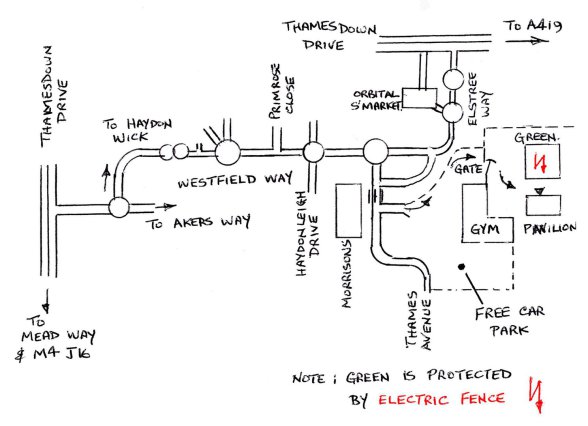 THAMESDOWN
DRIVE
TO A419
THAMESDOWN
DRIVE
ORBITAL
S'MARKET
ELSTREE
WAY
PRIMROSE
CLOSE
TO HAYDON
WICK
GREEN.
WESTFIELD WAY
GATE
TO AKERS WAY
GYM
PAVILION
HAYDONLEIGH
DRIVE
MORRISONS
THAMES
AVENUE
FREE CAR
PARK
TO
MEAD WAY
& M4 J16
NOTE; GREEN IS PROTECTED
BY ELECTRIC FENCE